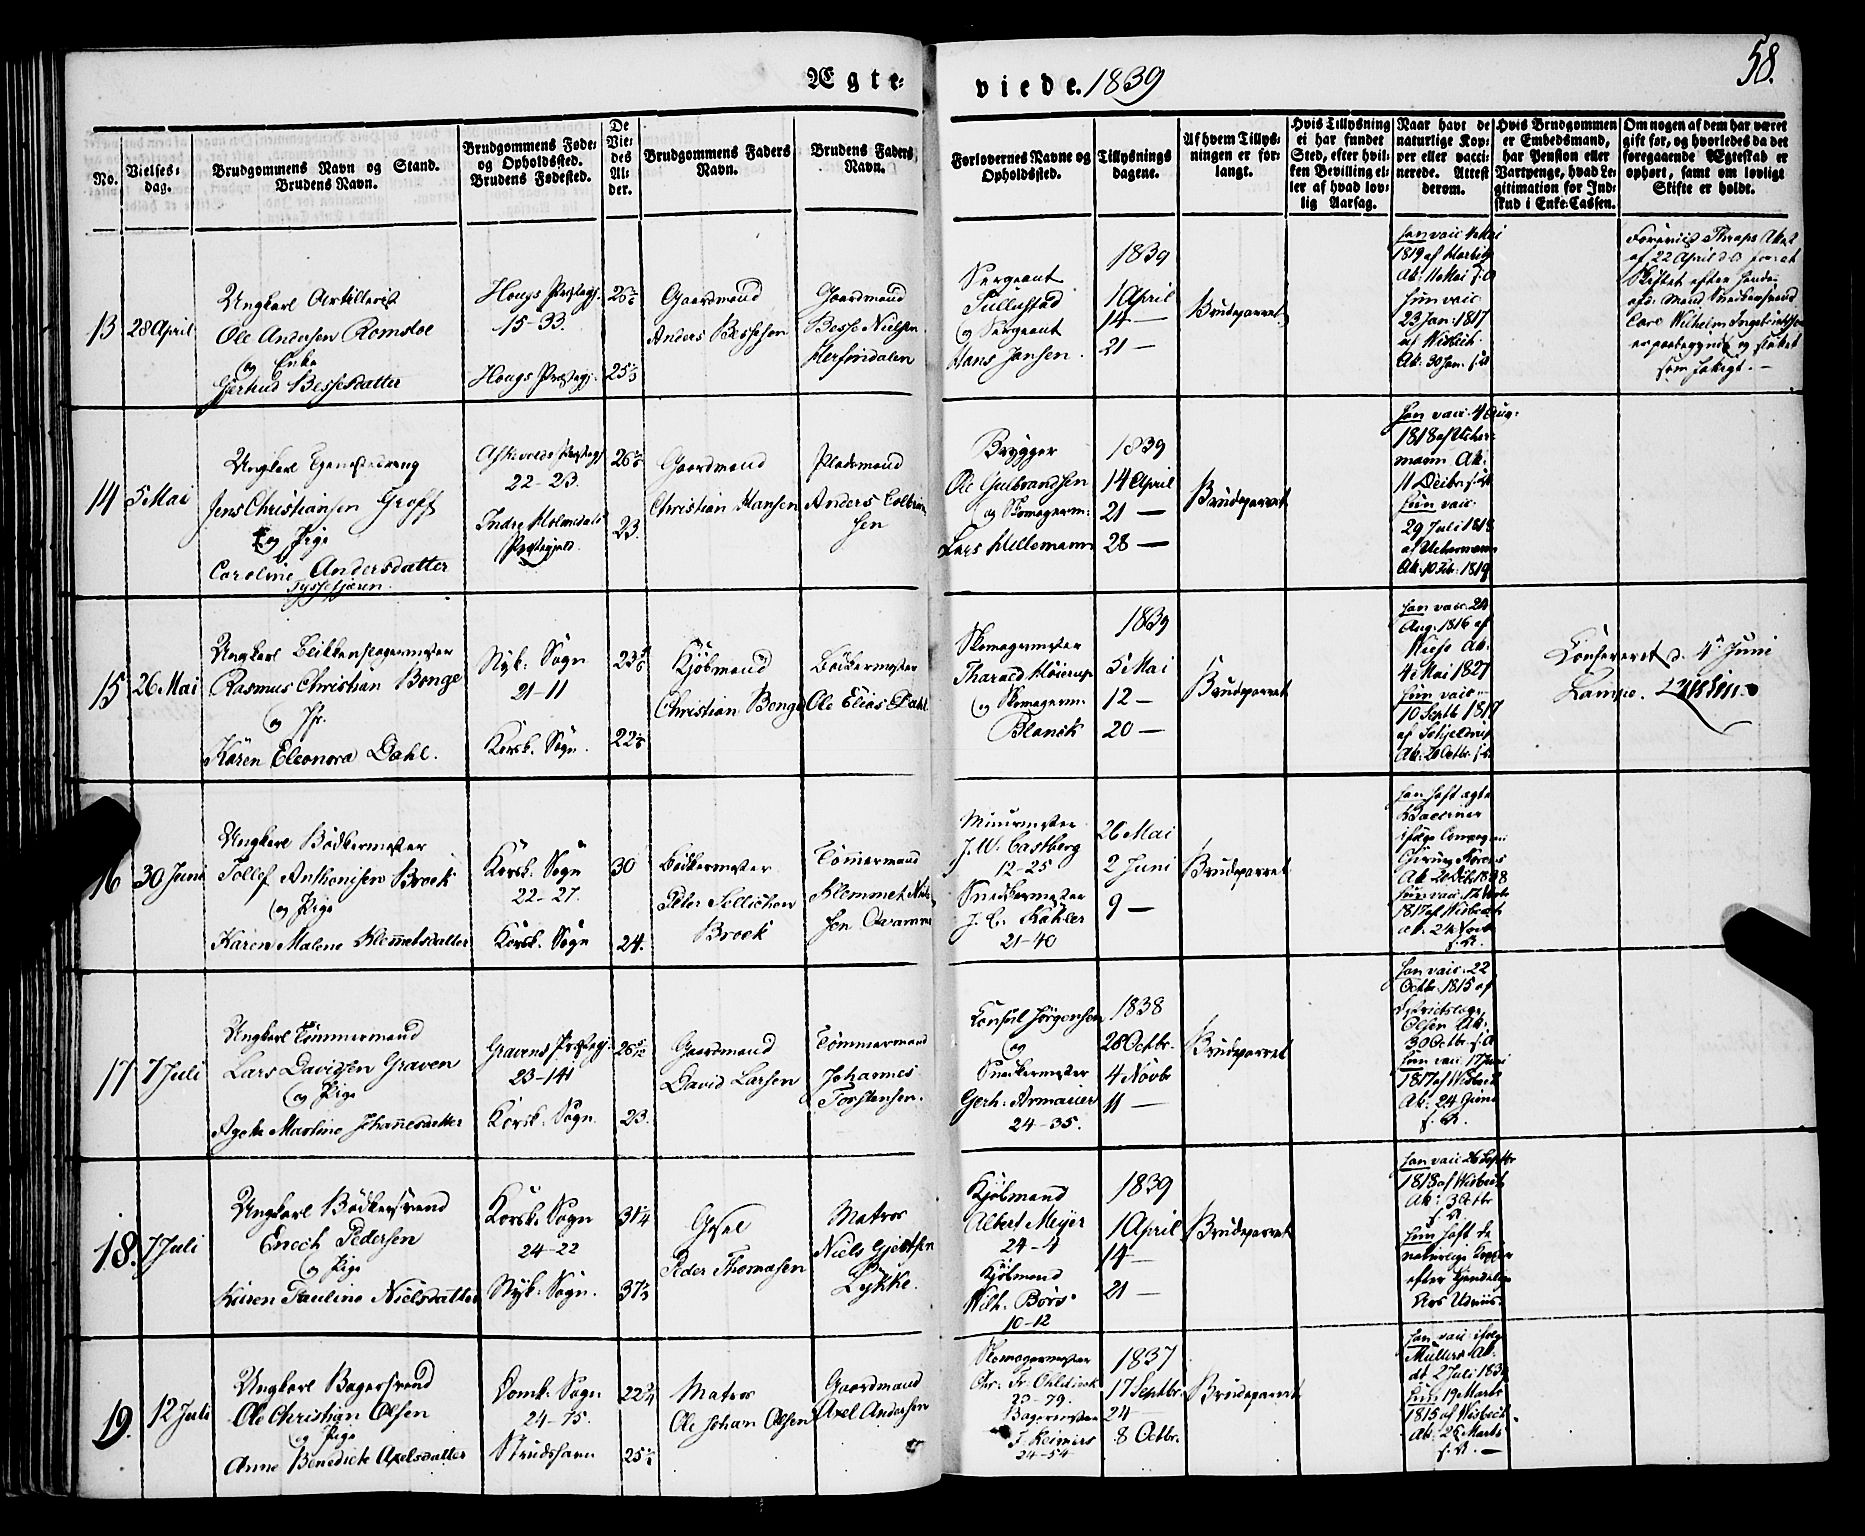 58.
Ægte-
viede. 1839
No.
Vielses-
dag.
Brudgommens Navn og Stand.
Brudens Navn.
Brudgommens Føde-
og Opholdssted.
Brudens Fødested.
De
Vie-
des
Al-
der.
Brudgommens Faders
Navn.
Brudens Faders
Navn.
Forlovernes Navne og
Opholdssted.
Tillysnings
dagene.
Af hvem Tillys-
ningen er for-
langt.
Hvis Tillysning
ei har fundet
Sted, efter hvil-
ken Bevilling el-
ler af hvad lov-
lig Aarsag.
Naar havt de
naturlige Kop-
per eller vacci-
nerede. Attest
derom.
Hvis Brudgommen
er Embedsmand,
har Pension eller
Vartpenge, hvad Le-
gitimation for Ind-
skud i Enke-Cassen.
Om nogen af dem har været
gift før, og hvorledes da det
foregaaende Ægteskab er
ophørt, samt om lovligt
Skifte er holdt.
13
28 April
Ungkarl Artillerist
Ole Andersen Romsloe
og Enke
Gjertrud Bessesdatter
Hougs Præstegj.
15-33.
Hougs Præstegj.
Gaardmand
Anders Bessesen
Gaardmand
Besse Nielsen
Herfindalen
Sergeant
Tullestad
og Sergeant
Hans Jansen.
1839
1 April
14 —
21 —
Brudeparret
han vacc. 4 Mai
1819 af
At. 11 Mai s. A.
hun vacc.
23 Jan: 1817
af Wisbech
At. 30 Jan. s. A.
af 22 April
Skiftet efter hendes
afd. Mand
Carl Wilhelm
er paabegyndt og sluttet
som solvent. —
14
5 Mai
Ungkarl Tjenestedreng
Jens Christiansen Groff
og Pige
Caroline Andersdatter
Tyssekjæren.
Askevolds Præstegj.
22-23.
Indre Holmedals
Præstegjæld.
23.
Gaardmand
Christian Hansen
Pladsmand
Anders Colbein-
sen
Brygger
Ole Gulbrandsen
og Skomagerm:
Lars Mellemann
1839
14 April
21 —
28 —
Brudeparret
han vacc. 4 Aug:
1818 af Ucher-
mann At.
hun vacc.
29 Juli 1818
af Uchermann
At. 10 Feb. 1819
15
26 Mai
Ungkarl Blikkenslagermester
Rasmus Christian Bonge
og Jfr.
Karen Eleonora Dahl.
Nyk: Sogn
21-11
Korsk. Sogn.
Kjøbmand
Christian Bonge
Bødkermester
Ole Elias Dahl.
Skomagermester
Tharald Høierup
og Skomagerm.
Blanck
1839
5 Mai
12 —
20 —
Brudeparret
han vacc. 24
Aug. 1816 af
At.
4 Mai 1827
hun vacc.
10 Septb 1817
af Schjelderup
At. 20 Octbr. s. A.
Confereret d. 4de Juni
16
30 Juni
Ungkarl Bødkermester
Tollef Anthonisen Brock
og Pige
Karen Malene Klemmetsdatter
Korsk. Sogn
22-27.
Korsk. Sogn
30
24.
Bødkermester
Peter Tollichan
Brock
Tømmermand
Klemmet Niel-
sen
Muurmester
J. W. Castberg
12-25
Snedkermester
J. C. Kahler
21-40
26 Mai
2 Juni
9 —
Brudeparret
han haft ægte
Vacciner
hun vacc.
1817 af Wisbech
17
7 Juli
Ungkarl Tømmermand
Lars Davidsen Graven
og Pige
Agethe Martine Johannesdatter
Gravens Præstegj.
23-141
Korsk. Sogn.
23.
Gaardmand
David Larsen
Tømmermand
Johannes
Torstensen.
Consul Jörgensen
og
Snedkermester
Gerh: Armauer
24-35.
1838
28 Octbr.
4 Novbr
11 —
Brudeparret
han vacc. 22
Octbr. 1815 af
Districtslæge
Olsen At.
30 Octbr. s. A.
hun vacc. 17 Juni
1817 af Wisbech
At. 24 Juni
s. A.
18.
7 Juli
Ungkarl Bødkersvend
Enoch Pedersen
og Pige
Karen Pauline Nielsdatter
Korsk. Sogn
24-22
Nyk. Sogn.
31¼
Gjæl
Peder Thomasen
Matros
Niels Gjertsen
Lykke.
Kjøbmand
Albert Meyer
24-4
Kjøbmand
Wilh. Börs.
10-12
1839
1 April
14 —
21 —
Brudeparret
han vacc 26 Septbr
1818 af Wisbech
At. 3 Octbr
s. A.
hun haft de
naturlige Kopper
efter
19.
12 Juli
Ungkarl Bagersvend
Ole Christian Olsen
og Pige
Anne Benedicte Axelsdatter
Domk. Sogn
24-75.
Strudshavn
Matros
Ole Johan Olsen
Gaardmand
Axel Andersen
Skomagermester
Chr. Fr.
23-79.
Bagermester
F. Reimers
24-54
1837
17 Septbr.
24 —
8 Octbr.
Brudeparret
han vacc. ifølge
Müllers At.
dt 2 Juli
hun: 19 Marts
1815 af Wisbech.
At. 26 Marts
s. A. —